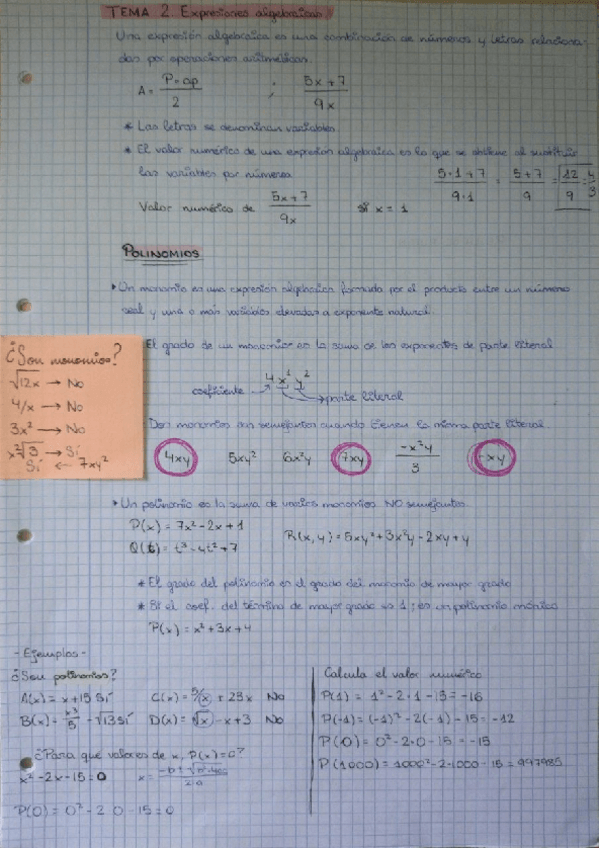 TEMA 2. Expresiones algebraicas
Una expresión algebraica es una combinación de números y letras relaciona-
das por operaciones aritméticas.
A = P·ap/2 ; 5x+7/9x
* Las letras se denominan variables.
* El valor numérico de una expresión algebraica es lo que se obtiene al sustituir
las variables por números.
Valor numérico de 5x+7/9x si x = 1 5·1+7/9·1 = 5+7/9 = 12/9 = 4/3
POLINOMIOS
Un monomio es una expresión algebraica formada por el producto entre un número
real y una o más variables elevadas a exponente natural.
El grado de un monomio es la suma de los exponentes de parte literal
coeficiente 4x²y² → parte literal
Dos monomios son semejantes cuando tienen la misma parte literal.
4xy 5xy² 6x²y 7xy -x²y/3 -xy
¿Son monomios?
√12x → No
4/x → No
3x² → No
x²√3 → Sí
Sí ← 7xy²
Un polinomio es la suma de varios monomios NO semejantes.
P(x) = 7x² - 2x + 1
Q(t) = t³ - 4t² + 7
R(x,y) = 5xy² + 3x²y - 2xy + y
* El grado del polinomio es el grado del monomio de mayor grado
* Si el coef. del término de mayor grado es 1; es un polinomio mónico
P(x) = x² + 3x + 4
- Ejemplos -
¿Son polinomios?
A(x) = x + 15 Sí C(x) = 5/x + 23x No
B(x) = x³/5 - √13 Sí D(x) = √x - x + 3 No
¿Para qué valores de x, P(x) = 0?
x² - 2x - 15 = 0
P(0) = 0² - 2 0 - 15 = 0
Calcula el valor numérico
P(1) = 1² - 2·1 - 15 = -16
P(-1) = (-1)² - 2(-1) - 15 = -12
P(0) = 0² - 2·0 - 15 = -15
P(1000) = 1000² - 2·1000 - 15 = 997985